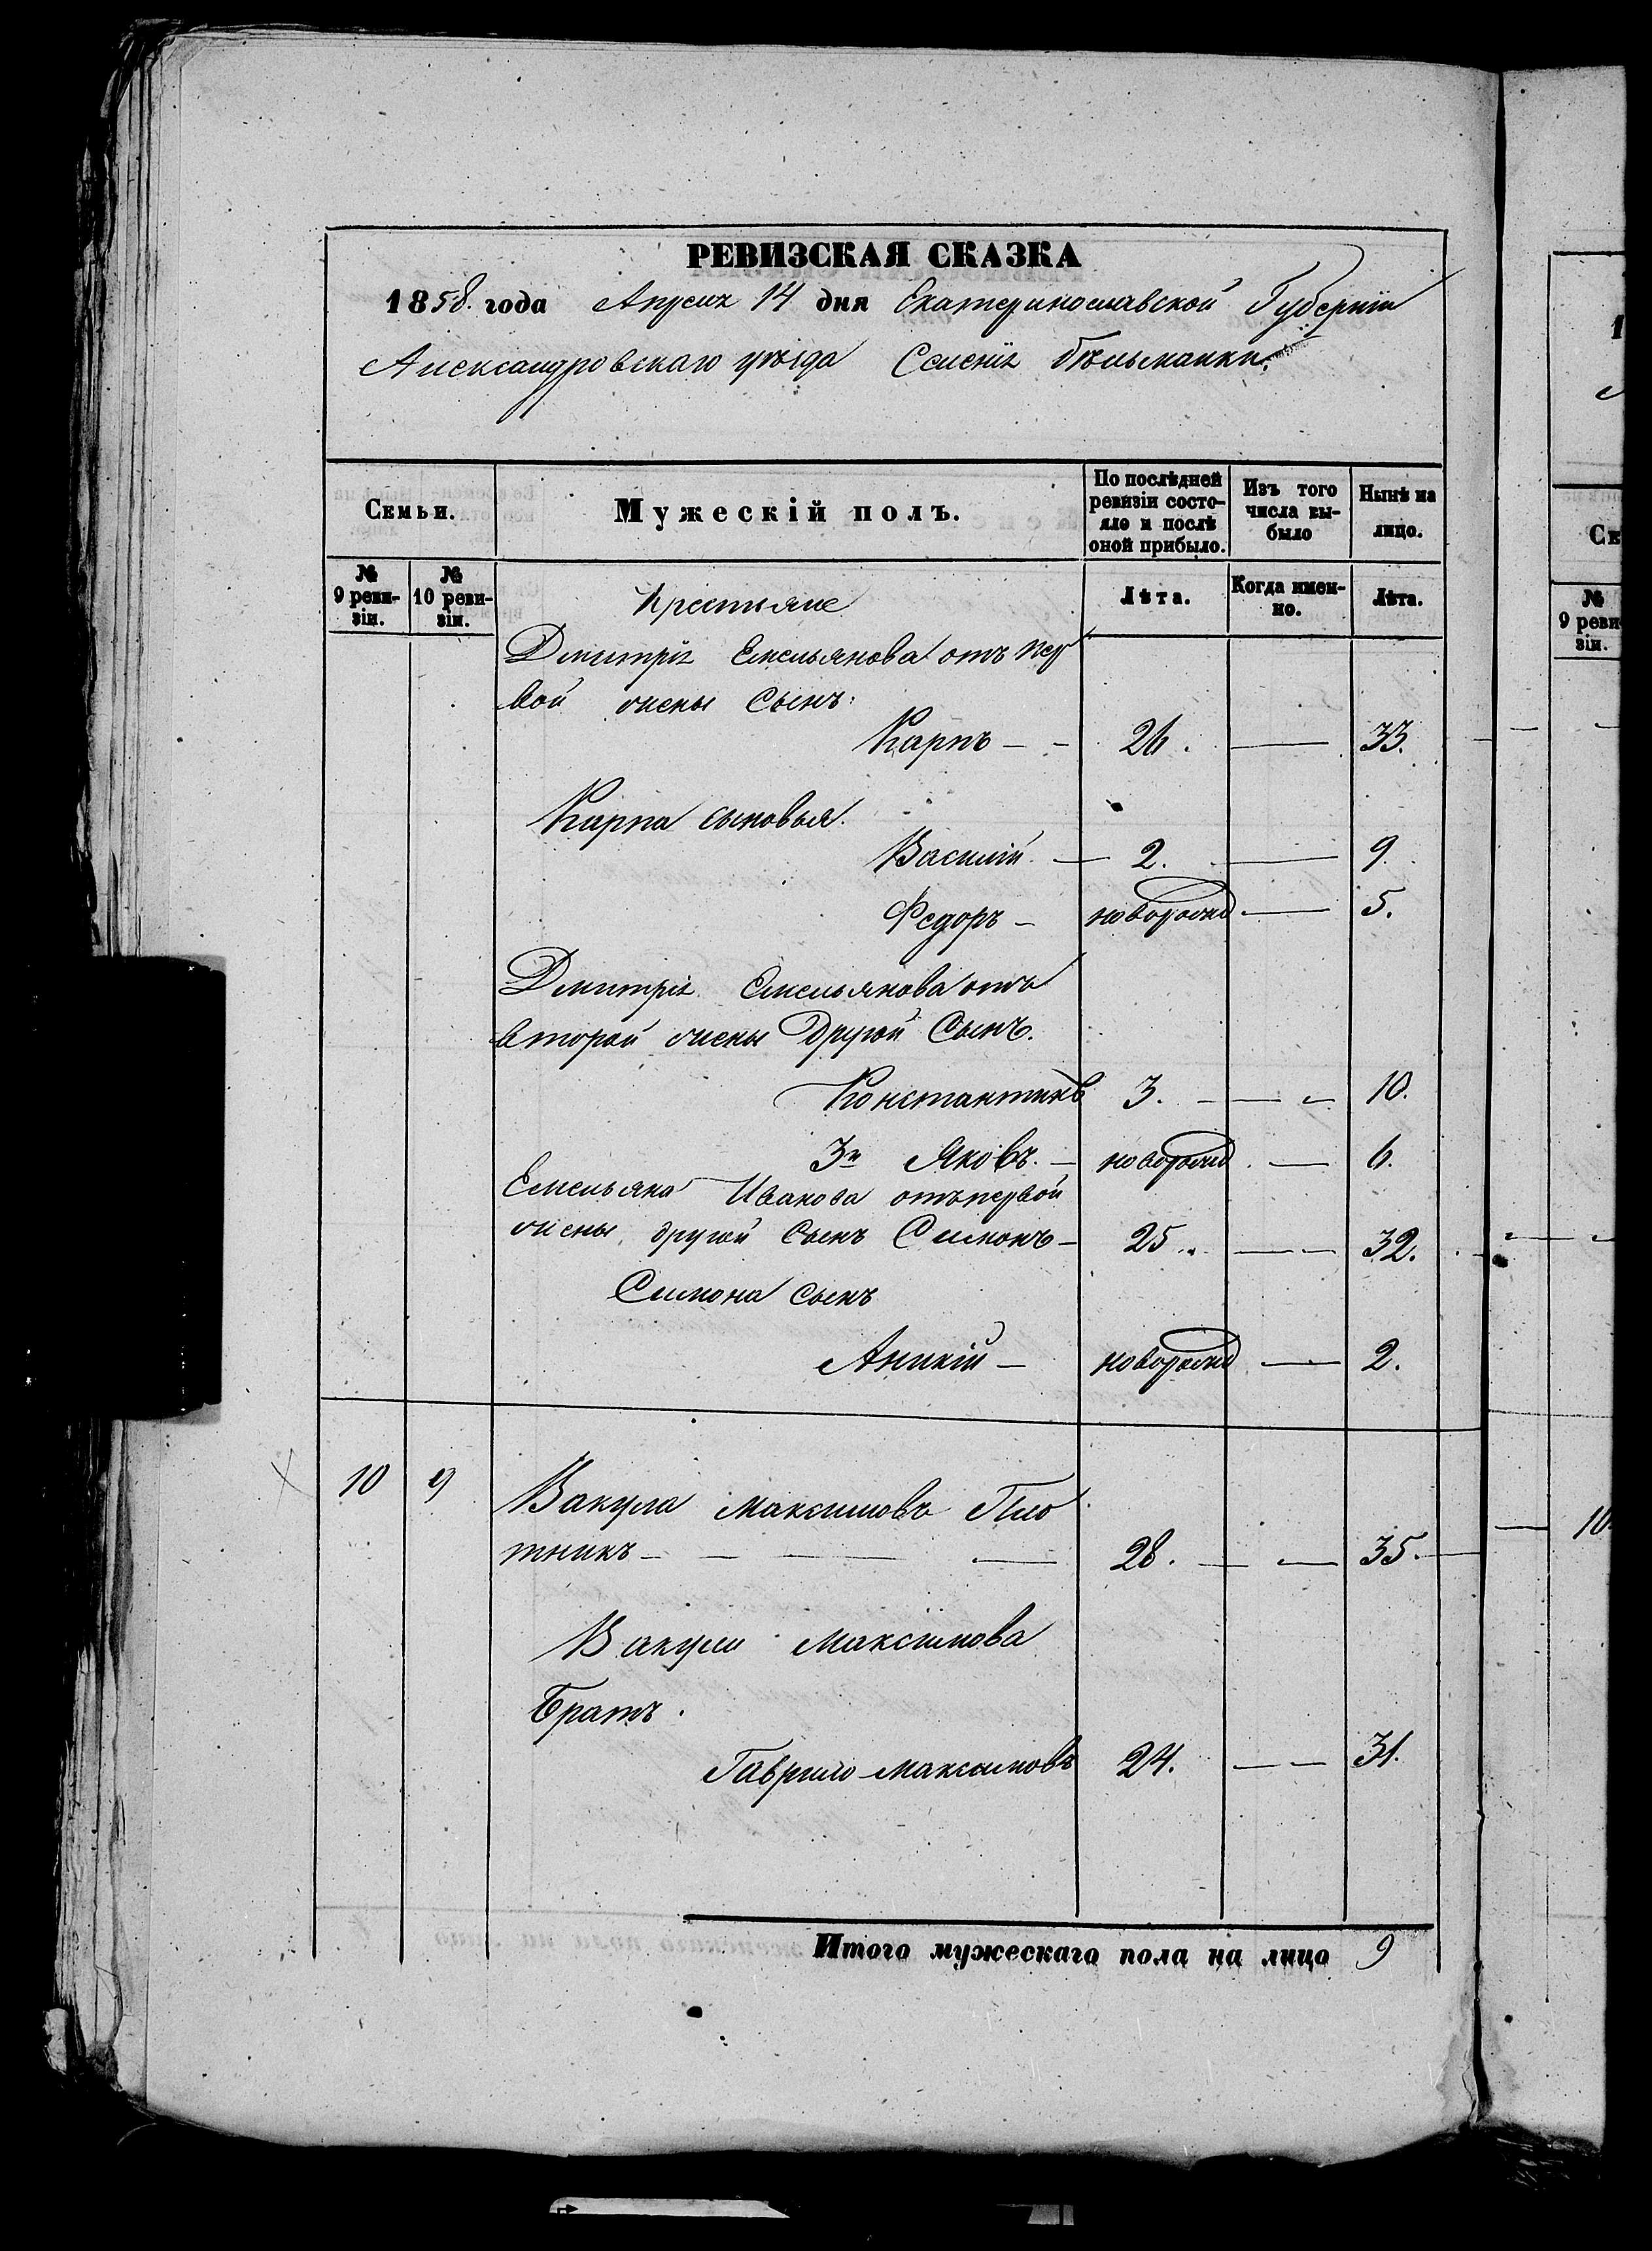 РЕВИЗСКАЯ СКАЗКА
1858. года Апреля 14 дня Екатеринославской Губерніи
Александровскаго уѣзда Селенія Бѣльманки.
Семьи. Мужескій полъ. По послѣдней ревизіи состояло и послѣ оной прибыло. Изъ того числа выбыло Нынѣ на лицо.
№ 9 ревизіи. № 10 ревизіи. Лѣта. Когда именно. Лѣта.
Крестьяне
Дмитрія Емельянова отъ пер
вой жены Сынъ:
Карпъ – – 26. — 33.
Карпа сыновья.
Василій. — 2. — 9
Федоръ – новорожд — 5.
Дмитрія Емельянова отъ
второй жены Другой Сынъ.
Константинъ 3. – — – 10.
3й Яковъ. – новорожд. — 6.
Емельяна Иванова отъ первой
жены другой Сынъ Симонъ – 25. — – 32.
Симона Сынъ
Аникій – новорожд — 2.
10 9 Вакула Максимовъ Пло
тникъ – – — — 28. – — 35.
Вакулы Максимова
Братъ.
Гаврило Максимовъ 24. – – 31.
Итого мужескаго пола на лицо 9
№
9 реви
зіи.
10